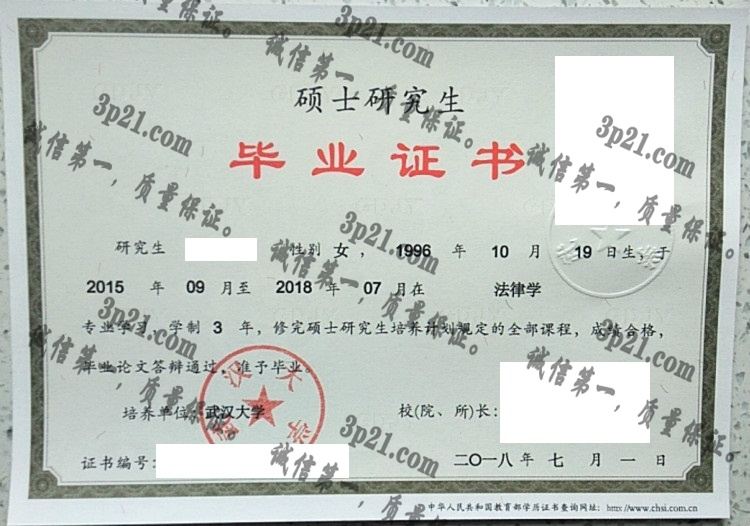 硕士研究生
毕业证书
研究生 性别 女，1996 年 10 月 19 日生，于
2015 年 09 月至 2018 年 07 月在 法律学
专业学习，学制 3 年，修完硕士研究生培养计划规定的全部课程，成绩合格，
毕业论文答辩通过，准予毕业。
培养单位：武汉大学 校(院、所)长：
证书编号： 二〇一八年 七 月 一 日
中华人民共和国教育部学历证书查询网址：http://www.chsi.com.cn
3p21.com
诚信第一，质量保证。
3p21.com
诚信第一，质量保证。
3p21.com
诚信第一，质量保证。
3p21.com
诚信第一，质量保证。
3p21.com
诚信第一，质量保证。
3p21.com
诚信第一，质量保证。
3p21.com
诚信第一，质量保证。